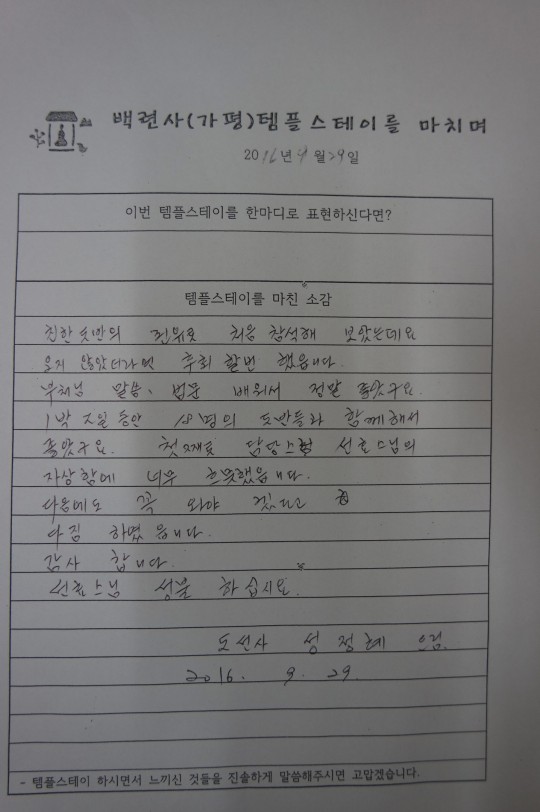 백련사(가평)템플스테이를 마치며
2016년 9월 29일
이번 템플스테이를 한마디로 표현하신다면?
템플스테이를 마친 소감
친한 도반의 권유로 처음 참석해 보았는데요
오지 않았더라면 후회 할번 했읍니다.
부처님 말씀, 법문 배워서 정말 좋았구요.
1박 2일 동안 18명의 도반들과 함께해서
좋았구요. 첫째로 담당스님 선효스님의
자상함에 너무 흐뭇했읍니다.
다음에도 꼭 와야 겠다고
다짐 하였읍니다.
감사 합니다.
선효스님 성불 하십시요.
도선사 성정혜 드림.
2016. 9. 29
- 템플스테이 하시면서 느끼신 것들을 진솔하게 말씀해주시면 고맙겠습니다.